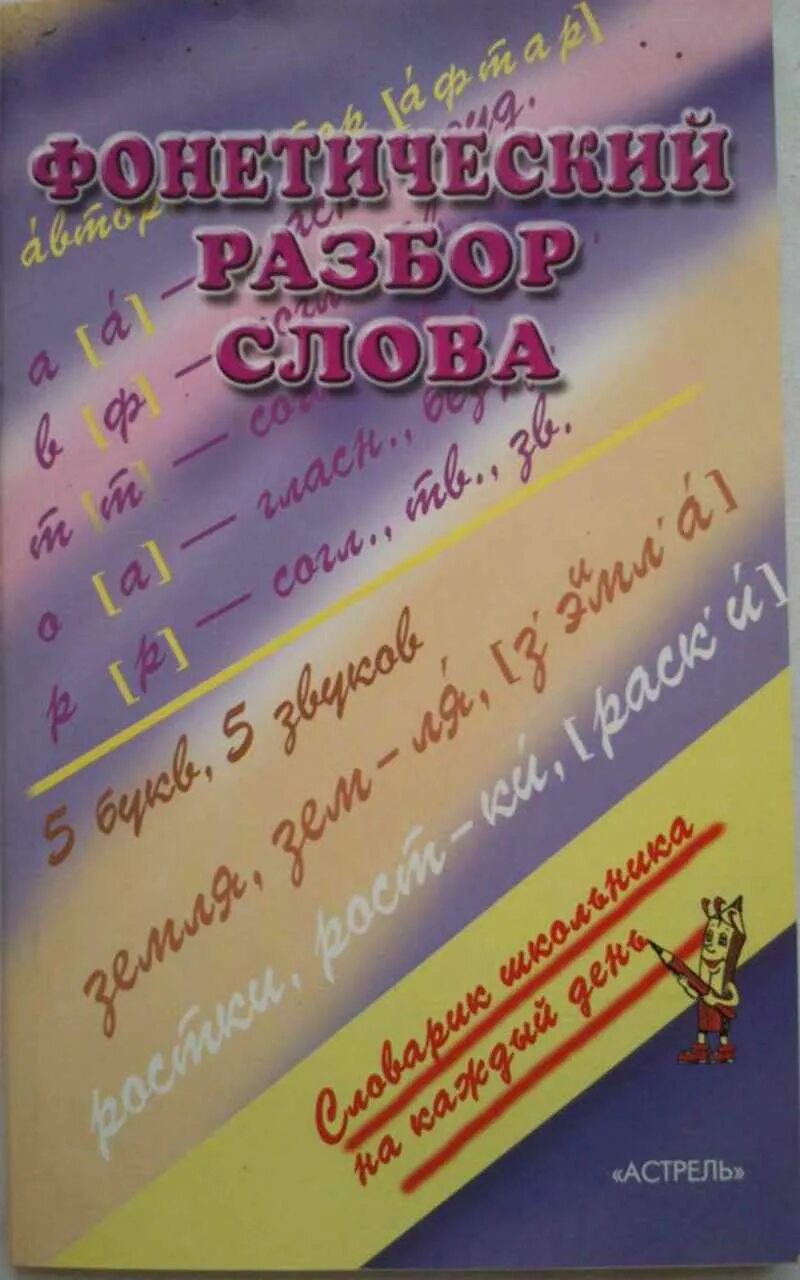 [áфтар]
áвтор
ФОНЕТИЧЕСКИЙ
РАЗБОР
СЛОВА
а [á] —
в [ф] —
т [т] — согл
о [а] — гласн., без
р [р] — согл., тв., зв.
5 букв, 5 звуков
земля, зем-ля́, [з'эимл'á]
ростки, рост-ки́, [раск'и́]
Словарик школьника
на каждый день
«АСТРЕЛЬ»